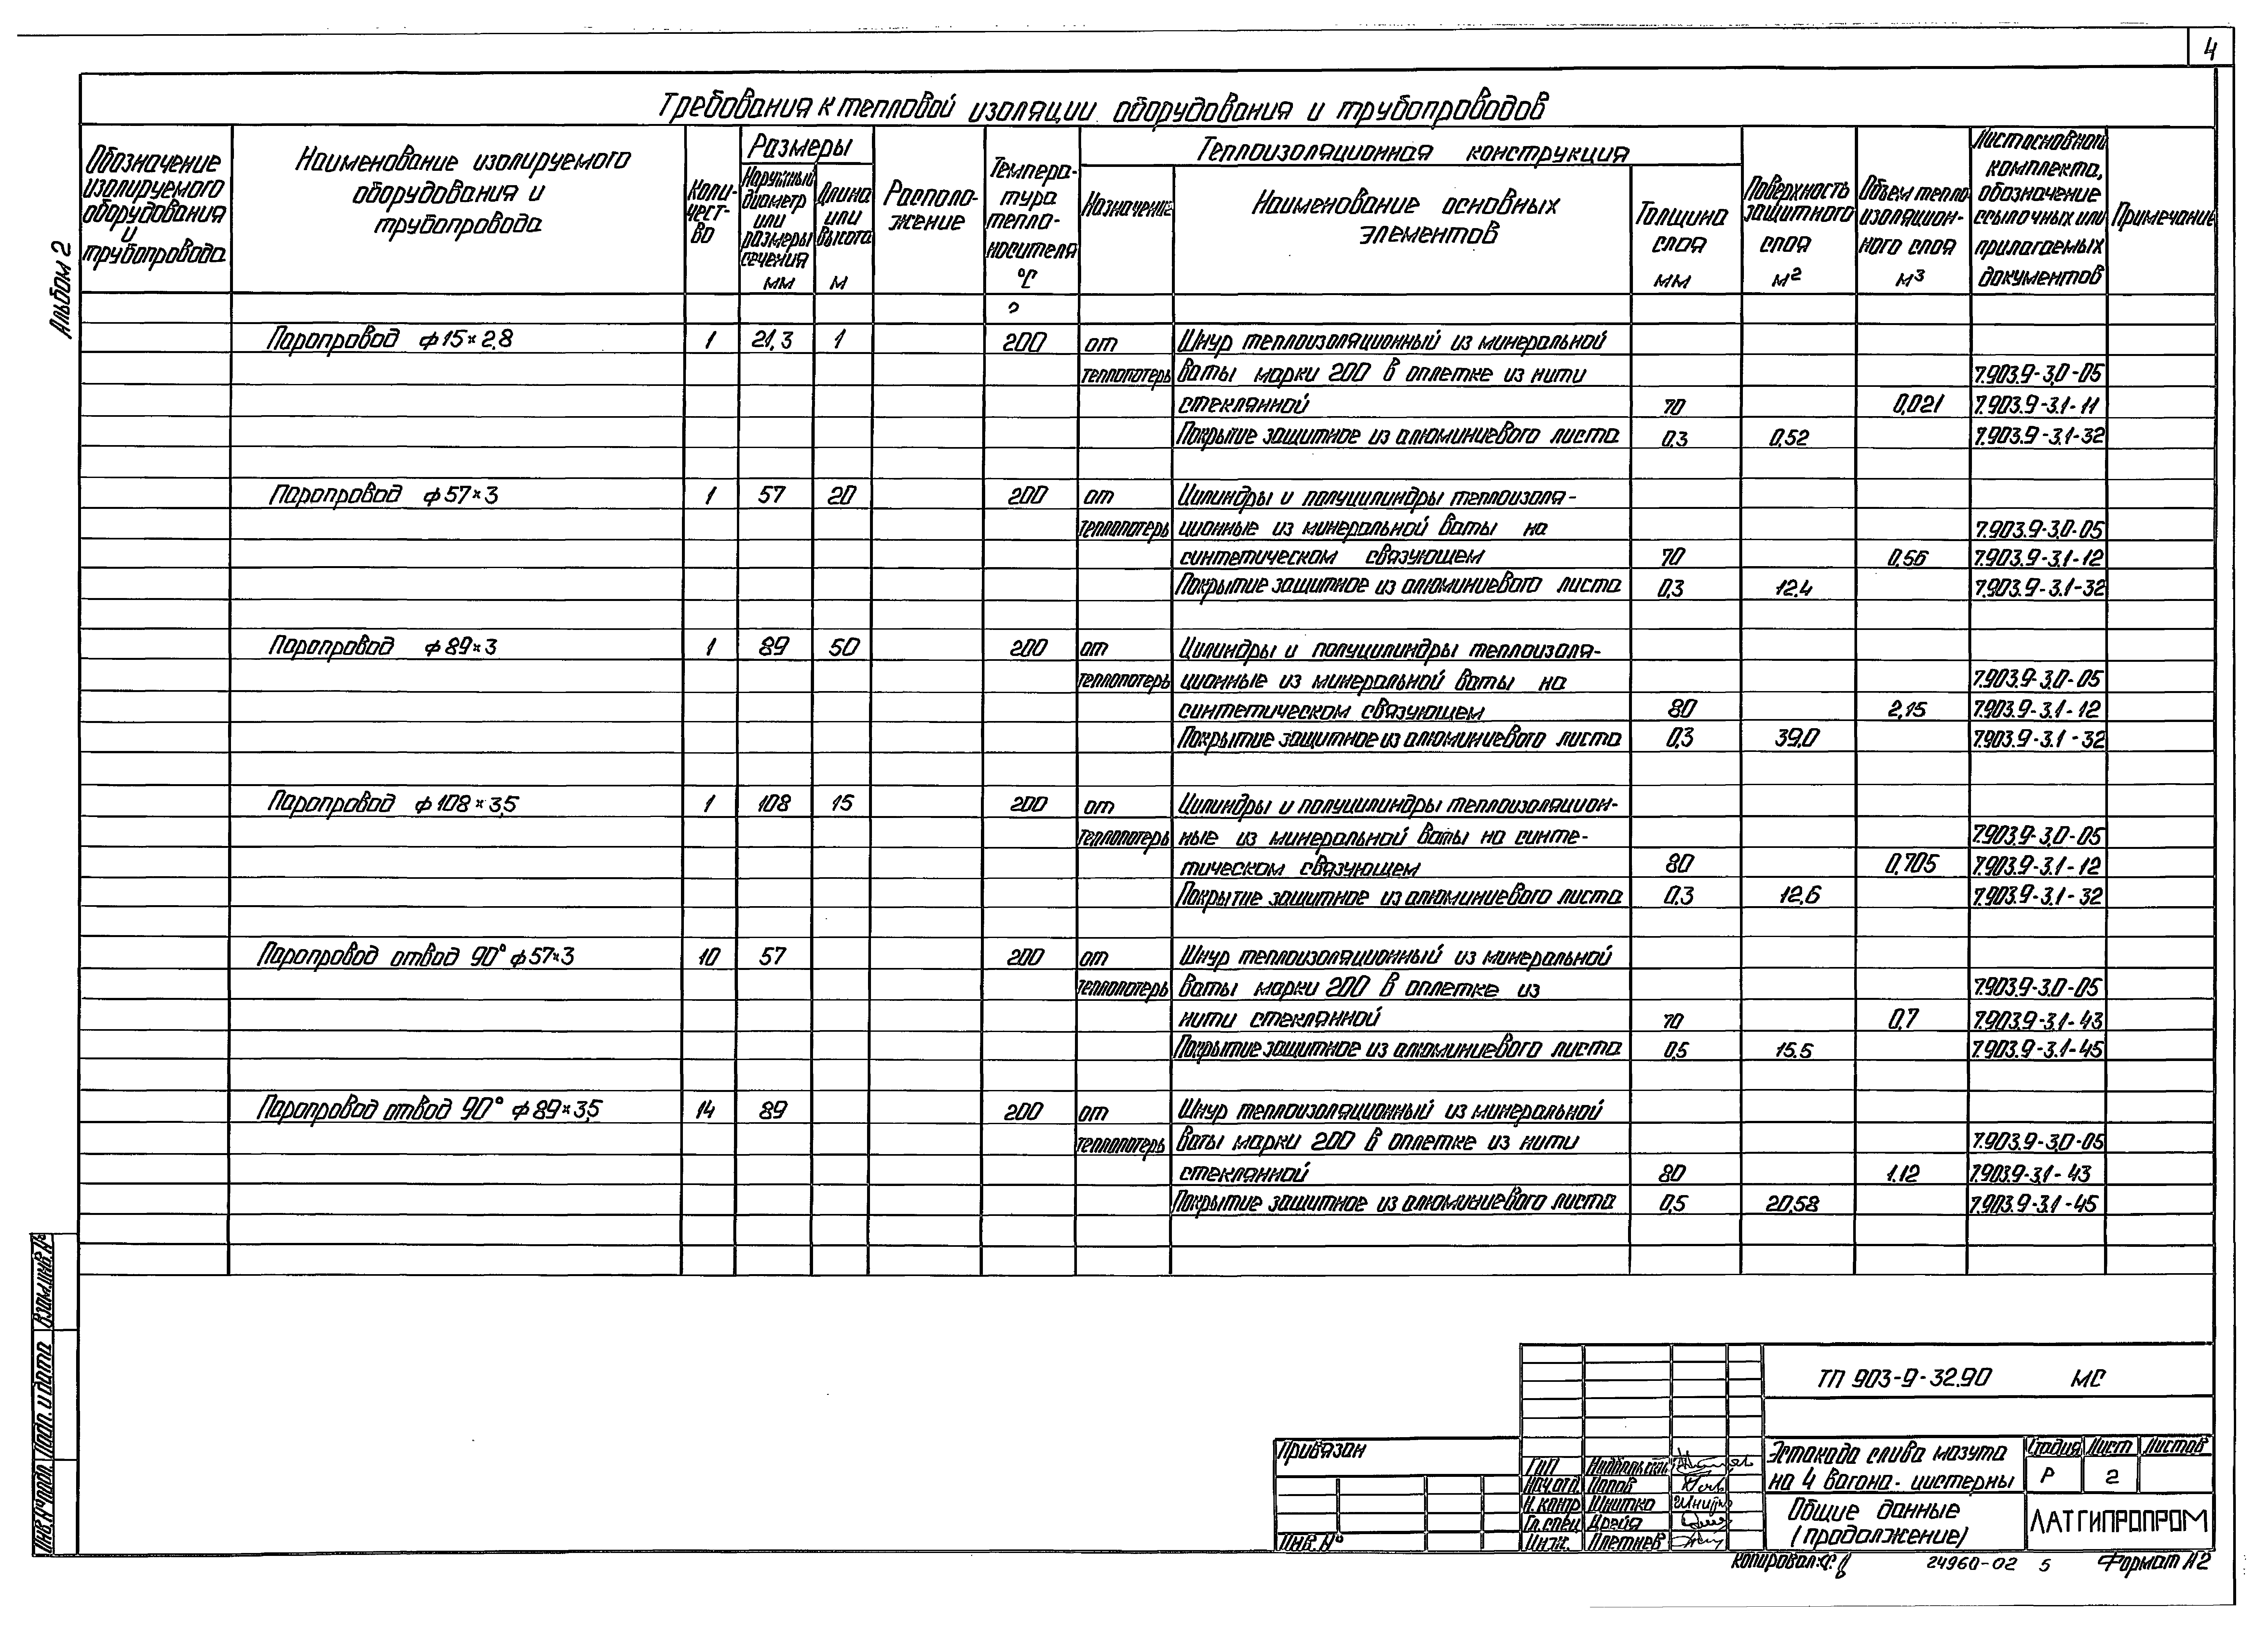 4
Требования к тепловой изоляции оборудования и трубопроводов
Альбом 2
Обозначение изолируемого оборудования и трубопровода
Наименование изолируемого оборудования и трубопровода
Количест-во
Размеры
Наружный диаметр или размеры сечения мм
Длина или высота м
Располо-жение
Темпера-тура тепло-носителя °С
Теплоизоляционная конструкция
Назначение
Наименование основных элементов
Толщина слоя мм
Поверхность защитного слоя м2
Объем тепло изоляцион-ного слоя м3
Лист основного комплекта, обозначение ссылочных или прилагаемых документов
Примечание
Паропровод ф15×2,8 1 21,3 1 200 от Шнур теплоизоляционный из минеральной
теплопотерь ваты марки 200 в оплетке из нити 7.903.9-3.0-05
стеклянной 70 0,021 7.903.9-3.1-11
Покрытие защитное из алюминиевого листа 0.3 0.52 7.903.9-3.1-32
Паропровод ф57×3 1 57 20 200 от Цилиндры и полуцилиндры теплоизоля-
теплопотерь ционные из минеральной ваты на 7.903.9-3.0-05
синтетическом связующем 70 0,56 7.903.9-3.1-12
Покрытие защитное из алюминиевого листа 0.3 12.4 7.903.9-3.1-32
Паропровод ф89×3 1 89 50 200 от Цилиндры и полуцилиндры теплоизоля-
теплопотерь ционные из минеральной ваты на 7.903.9-3.0-05
синтетическом связующем 80 2,15 7.903.9-3.1-12
Покрытие защитное из алюминиевого листа 0.3 39.0 7.903.9-3.1-32
Паропровод ф108×3,5 1 108 15 200 от Цилиндры и полуцилиндры теплоизоляцион-
теплопотерь ные из минеральной ваты на синте- 7.903.9-3.0-05
тическом связующем 80 0,705 7.903.9-3.1-12
Покрытие защитное из алюминиевого листа 0.3 12.6 7.903.9-3.1-32
Паропровод отвод 90° ф57×3 10 57 200 от Шнур теплоизоляционный из минеральной
теплопотерь ваты марки 200 в оплетке из 7.903.9-3.0-05
нити стеклянной 70 0,7 7.903.9-3.1-43
Покрытие защитное из алюминиевого листа 0.5 15.5 7.903.9-3.1-45
Паропровод отвод 90° ф89×3,5 14 89 200 от Шнур теплоизоляционный из минеральной
теплопотерь ваты марки 200 в оплетке из нити 7.903.9-3.0-05
стеклянной 80 1.12 7.903.9-3.1-43
Покрытие защитное из алюминиевого листа 0.5 20.58 7.903.9-3.1-45
Взам.инв.№
Подп. и дата
Инв.№ подл.
ТП 903-9-32.90 МС
Привязан
Инв.№
ГИП
Нач.отд. Попов
Н.контр Шнитко
Гл.спец Дрейя
Инж. Плетнев
Эстакада слива мазута
на 4 вагона-цистерны
Стадия Лист Листов
Р 2
Общие данные
(продолжение)
ЛАТГИПРОПРОМ
копировал: 24960-02 5 Формат А2